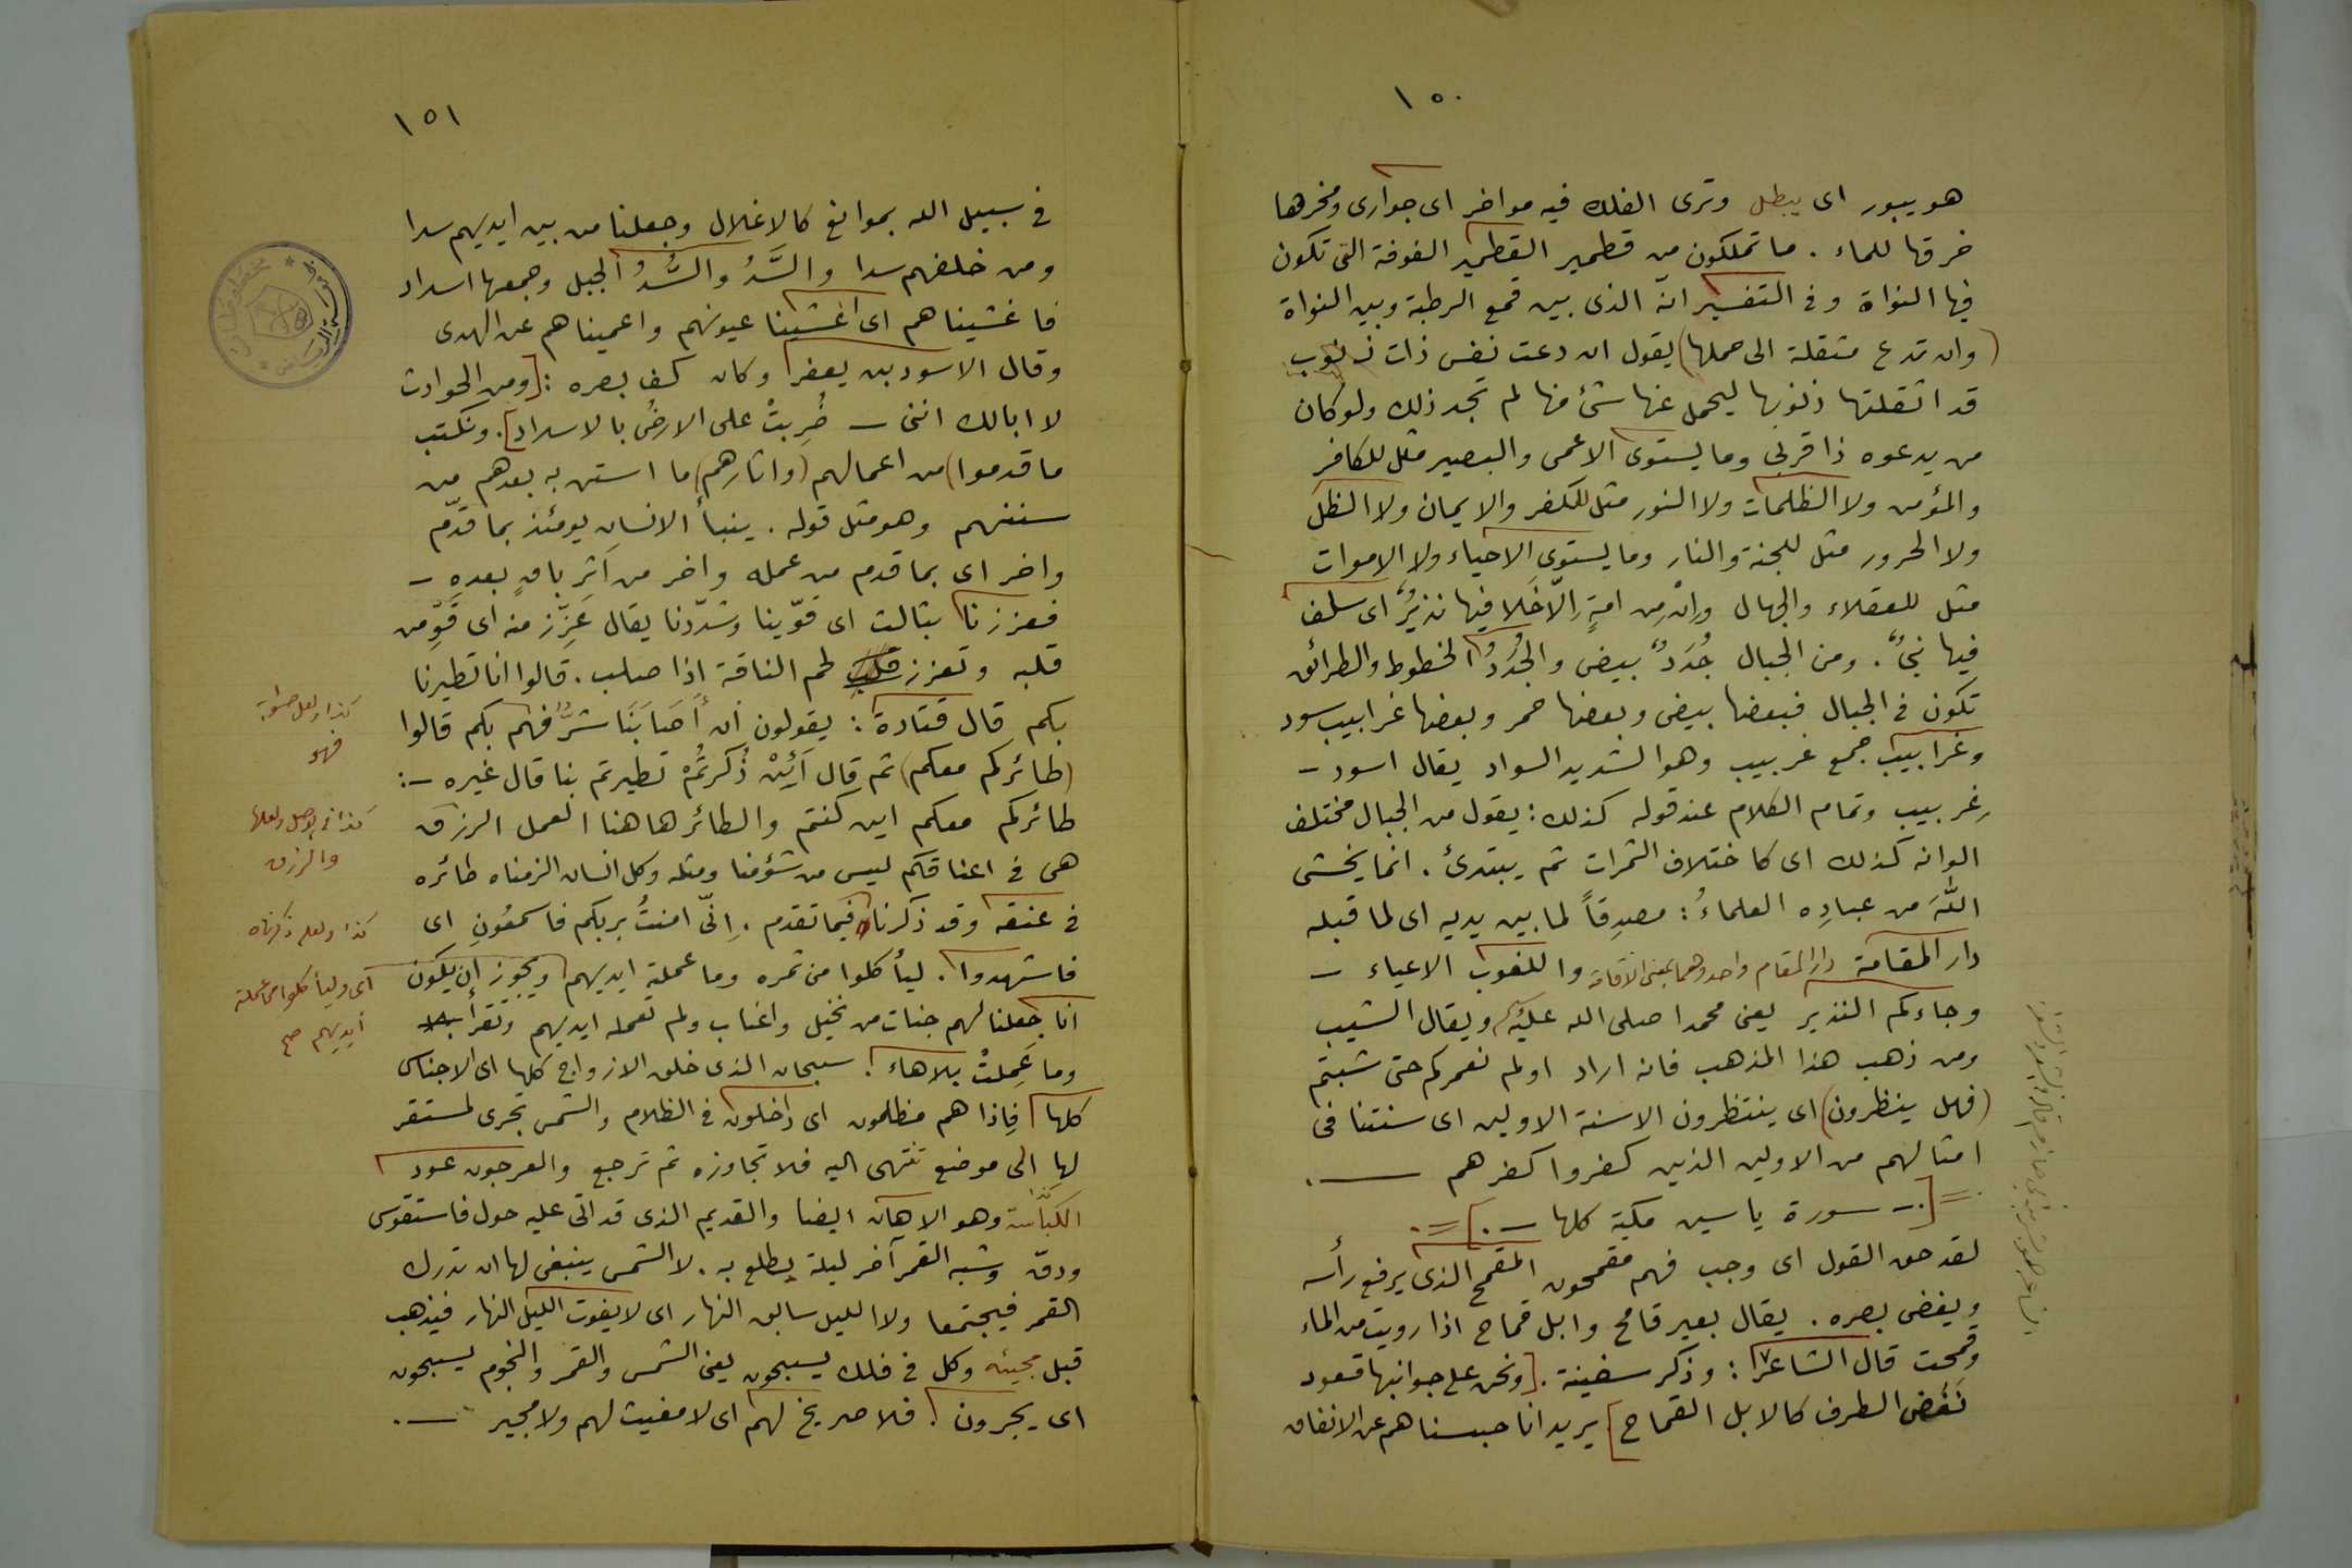 ١٥٠
هو يبور اى يبطل وترى الفلك فيه مواخر اى جوارى ومخرها
خرقها للماء . ما تملكون من قطمير القطمير الفوفة التى تكون
فيها النواة وفى التفسير انّه الذى بين قمع الرطبة وبين النواة
(وان تدع مثقلة الى حملها) يقول ان دعت نفس ذات ذنوب
قد اثقلتها ذنوبها ليحمل عنها شئ منها لم تجد ذلك ولو كان
من يدعوه ذا قربى وما يستوى الاعمى والبصير مثل للكافر
والمؤمن ولا الظلمات ولا النور مثل للكفر والايمان ولا الظل
ولا الحرور مثل للجنة والنار وما يستوى الاحياء ولا الاموات
مثل للعقلاء والجهال وإنْ مِن امةٍ إلّا خَلَا فيها نذيرٌ اى سلف
فيها نبىٌ . ومن الجبال جُدَدٌ بيض والجُدَدُ الخطوط والطرائق
تكون فى الجبال فبعضها بيض وبعضها حمر وبعضها غرابيب سود
وغرابيب جمع غربيب وهو الشديد السواد يقال اسود -
غِربيب وتمام الكلام عند قوله كذلك : يقول من الجبال مختلف
الوانه كذلك اى كاختلاف الثمرات ثم يبتدئ . انما يخشى
اللهَ من عبادِه العلماءُ : مصدِقاً لما بين يديه اى لما قبله
دار المقامة دار المقام واحد وهما بمعنى الاقامة واللغوب الاعياء -
وجاءكم النذير يعنى محمدا صلى الله عليه ويقال الشيب
ومن ذهب هذا المذهب فانه اراد اولم نعمركم حتى شبتم
(فهل ينظرون) اى ينتظرون الا سنة الاولين اى سنتنا فى
امثالهم من الاولين الذين كفروا كفرهم ــ .
=[.- سورة ياسين مكية كلها -.]=.
لقد حق القول اى وجب فهم مقمحون المقمح الذى يرفع رأسه
ويغض بصره . يقال بعير قامح وابل قماح اذا رويت من الماء
وقمحت قال الشاعر : وذكر سفينة . [ونحن على جوانبها قعود
نَغُض الطرف كالابل القماح] يريد انا حبسناهم عن الانفاق
١٥١
فى سبيل الله بموانع كالاغلال وجعلنا من بين ايديهم سدا
ومن خلفهم سدا والسَّدُ والسُّدُ الجبل وجمعها اسداد
فاغشيناهم اى اغشينا عيونهم واعميناهم عن الهدى
وقال الاسود بن يعفر وكان كف بصره : [ومن الحوادث
لا ابالك اننى - ضُرِبتْ على الارضُ بالاسداد] . ونكتب
ما قدموا) من اعمالهم (واثارهم) ما استن به بعدهم من
سننهم وهو مثل قوله . ينبأ الانسان يومئذ بما قدّم
واخر اى بما قدم من عمله واخر من اثرٍ باقٍ بعده -
فعززنا بثالث اى قوّينا وشدّدنا يقال عَزِّز منه اى قَوِّ من
قلبه وتعزز لحم الناقة اذا صلب . قالوا انا تطيرنا
بكم قال قتادة : يقولون أن أصَابَنَا شرٌ فهم بكم قالوا
(طائركم معكم) ثم قال أئِنْ ذُكِرتُمْ تطيرتم بنا قال غيره -:
طائركم معكم اين كنتم والطائر هاهنا العمل الرزق
هى فى اعناقكم ليس من شؤمنا ومثله وكل انسان الزمناه طائره
فى عنقه وقد ذكرنا فيما تقدم . إنّى امنتُ بربكم فاسمعُونِ اى
فاشهدوا . ليأكلوا من ثمره وما عملته ايديهم ويجوز ان يكون
انا جعلنا لهم جنات من نخيل واعناب ولم تعمله ايديهم وتقرأ
وما عَمِلتْ بلا هاء . سبحان الذى خلق الازواج كلها اى الاجناس
كلها فإذا هم مظلمون اى داخلون فى الظلام والشمس تجرى لمستقر
لها الى موضع تنتهى اليه فلا تجاوزه ثم ترجع والعرجون عود
الكباسة وهو الاهان ايضا والقديم الذى قد اتى عليه حول فاستقوس
ودقّ وشبه القمر آخر ليلة يطلع به . لا الشمس ينبغى لها ان تدرك
القمر فيجتمعا ولا الليل سابق النهار اى لا يفوت الليل النهار فيذهب
قبل مجيئه وكل فى فلك يسبحون يعنى الشمس والقمر والنجوم يسبحون
اى يجرون . فلا صريخ لهم اى لا مغيث لهم ولا مجير ــ .
كذا ولعل صوابه
فهو
كذا فى الاصل ولعلها
والرزق
كذا ولعله ذكرناه
اى وليأكلوا مما عملته
ايديهم صح